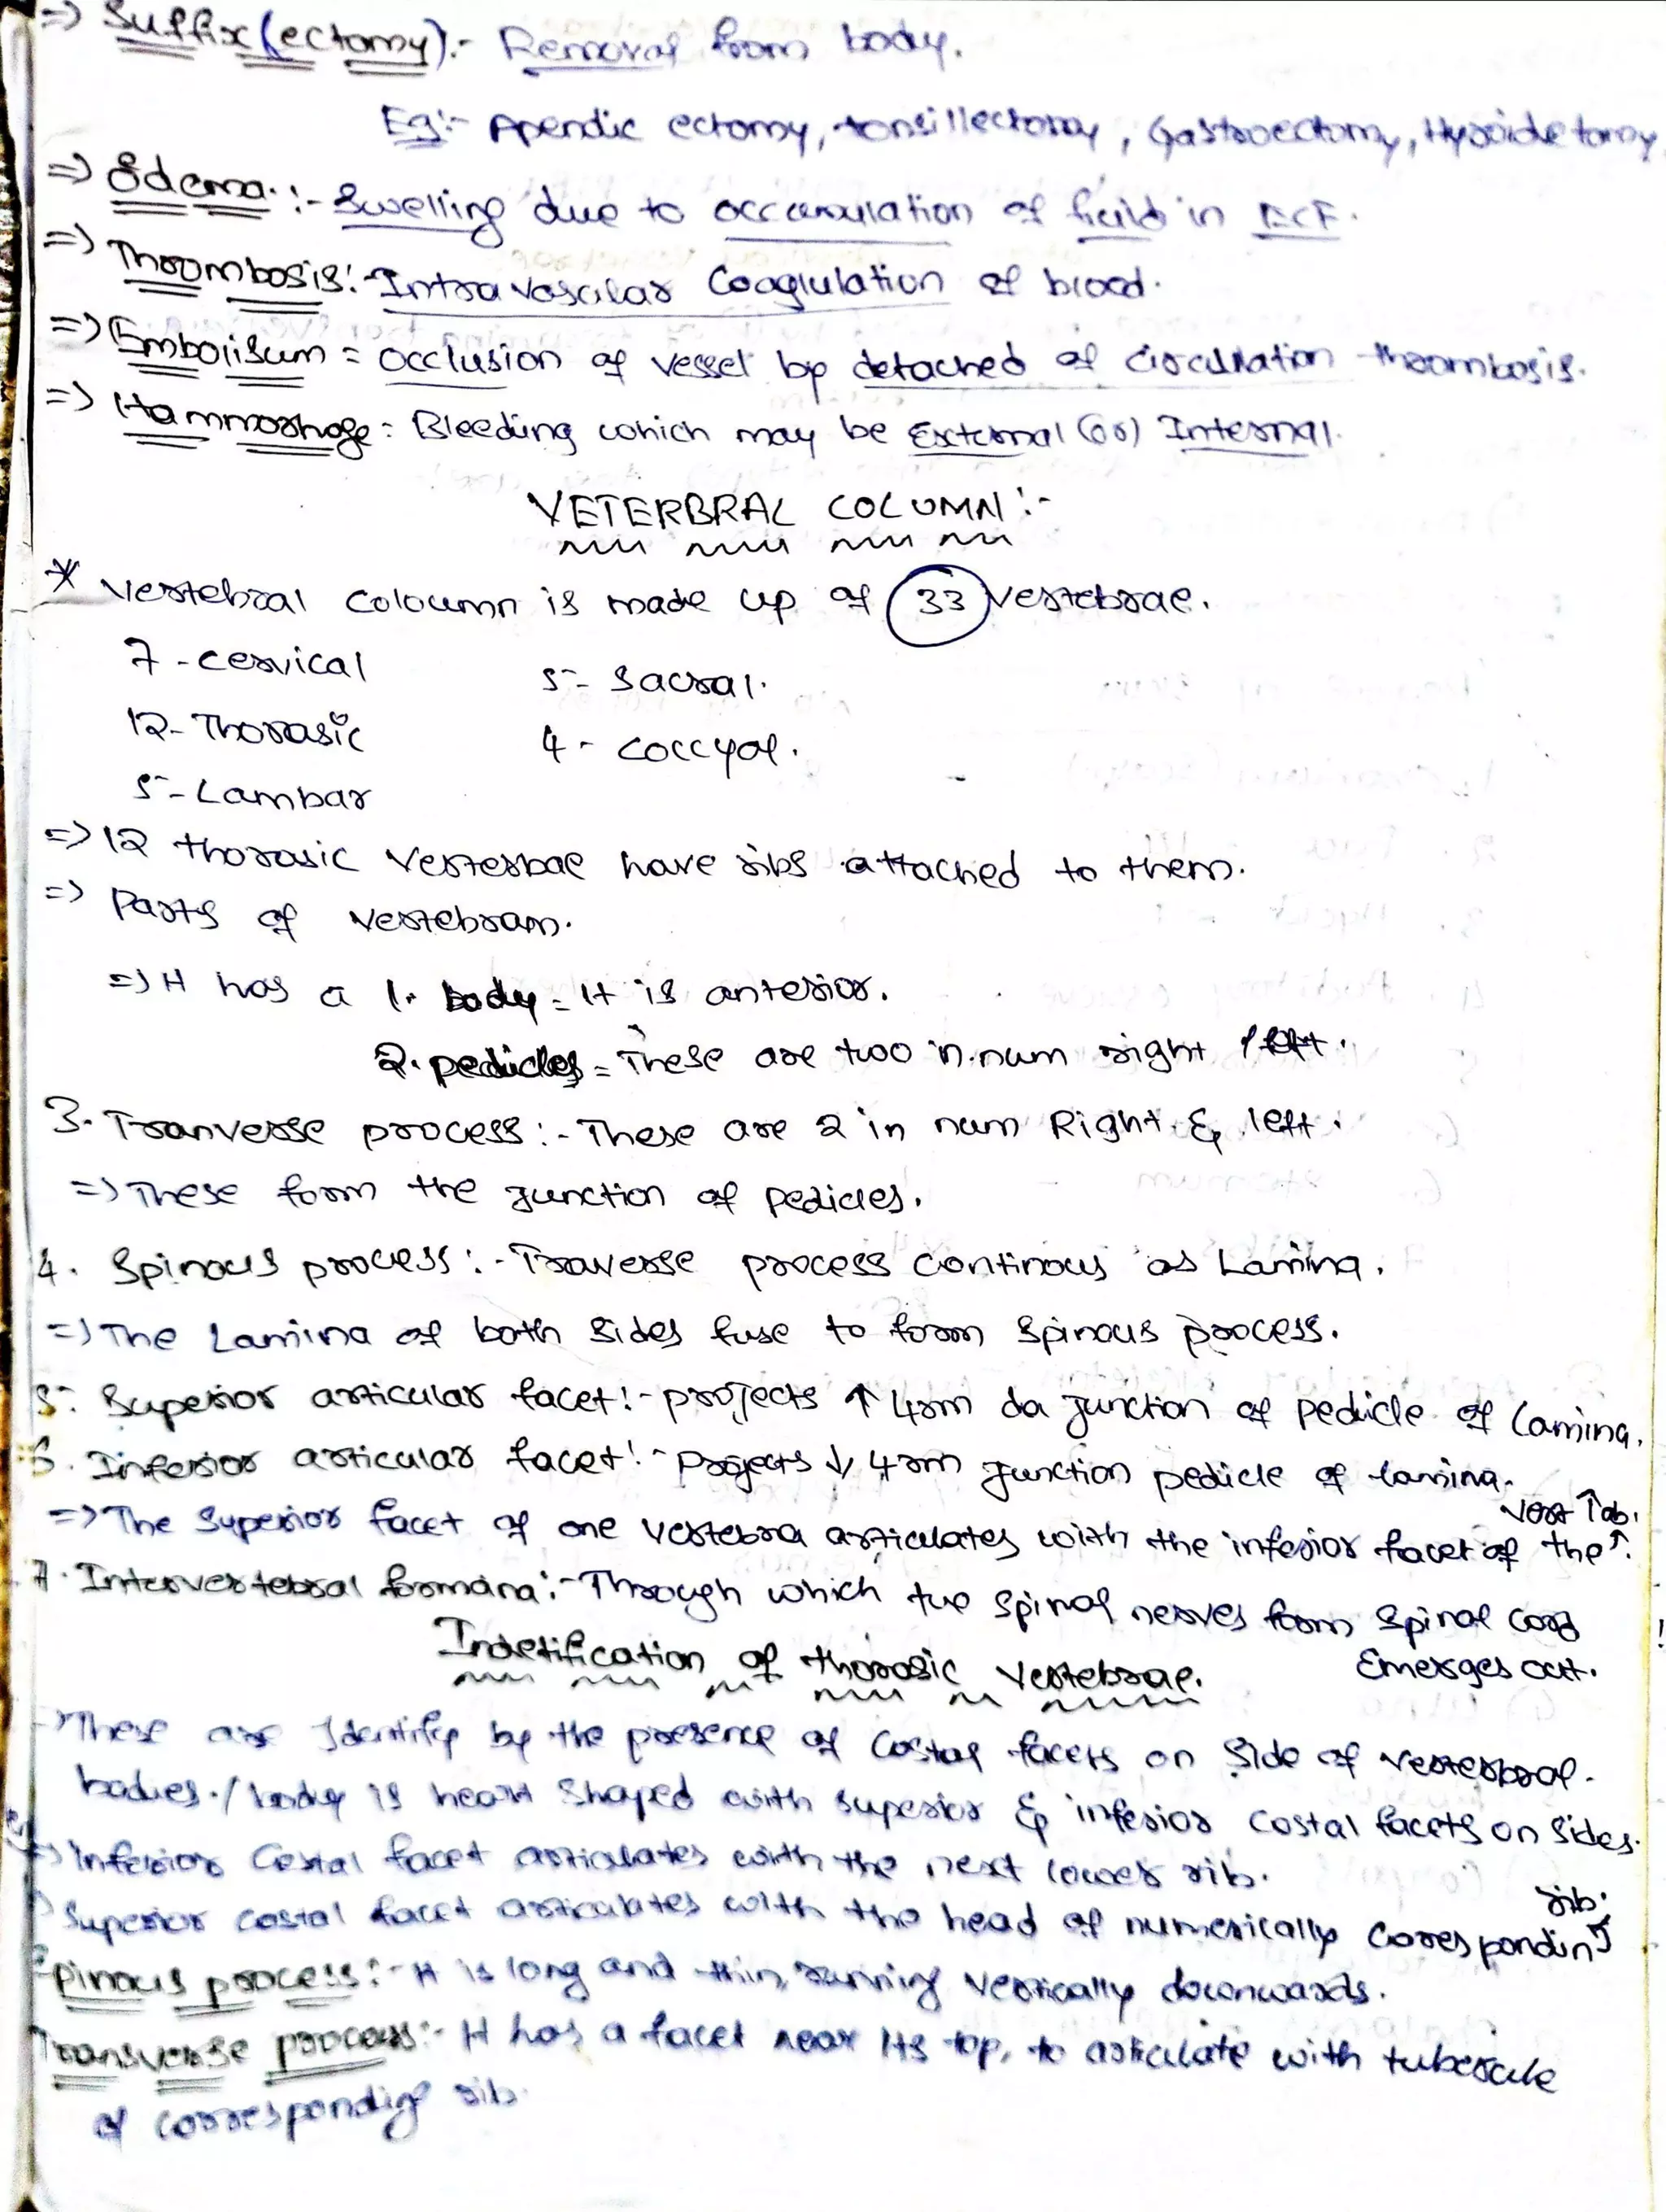 => Suffix (ectomy):- Removal from body.
Eg:- Apendic ectomy, tonsillectomy, Gastroectomy,
=> Edema:- Swelling due to occamulation of fluid in ECF.
=> Thrombosis:- Intravascular Coaglulation of blood.
=> Embolisum = occlusion of vessel by detached of circulation thrombosis.
=> Hammorhage = Bleeding which may be External (or) Internal.
VETERBRAL COLUMN:-
* Vertebral coloumn is made up of 33 vertebrae.
7 - cervical
5 - Sacral.
12 - Thorasic
4 - coccyal.
5 - Lambar
=> 12 thorasic Verterbae have ribs attached to them.
=> Parts of vertebram.
=> It has a 1. body = It is anterior.
2. pedicles = These are two in num right / left.
3. Tranverse process:- These are 2 in num Right & left.
=> These form the junction of pedicles.
4. Spinous process:- Traverse process continous as Lamina.
=> The Lamina of both sides fuse to form spinous process.
5. Superior articular facet:- projects ↑ 4rm da junction of pedicle of lamina.
6. Inferior articular facet:- Projects ↓ 4rm junction pedicle of lamina.
vert ↑ ab.
=> The superior facet of one vertebra articulates with the inferior facet of the ↑.
7. Intervertebral formana:- Through which the spinal nerves form spinal cord
Emerges out.
Indetification of thorasic vertebrae.
→ These are Identify by the presence of costal facets on side of verterbral.
bodies. / body is heart shaped with superior & inferior costal facets on sides.
=> Inferior Costal facet articulates with the next lower rib.
rib.
Superior costal facet articulates with the head of numerically corresponding
Spinous process:- It is long and thin, running vertically downwards.
Transverse process:- It has a facet near its top, to articulate with tubercule
of correspondig rib.